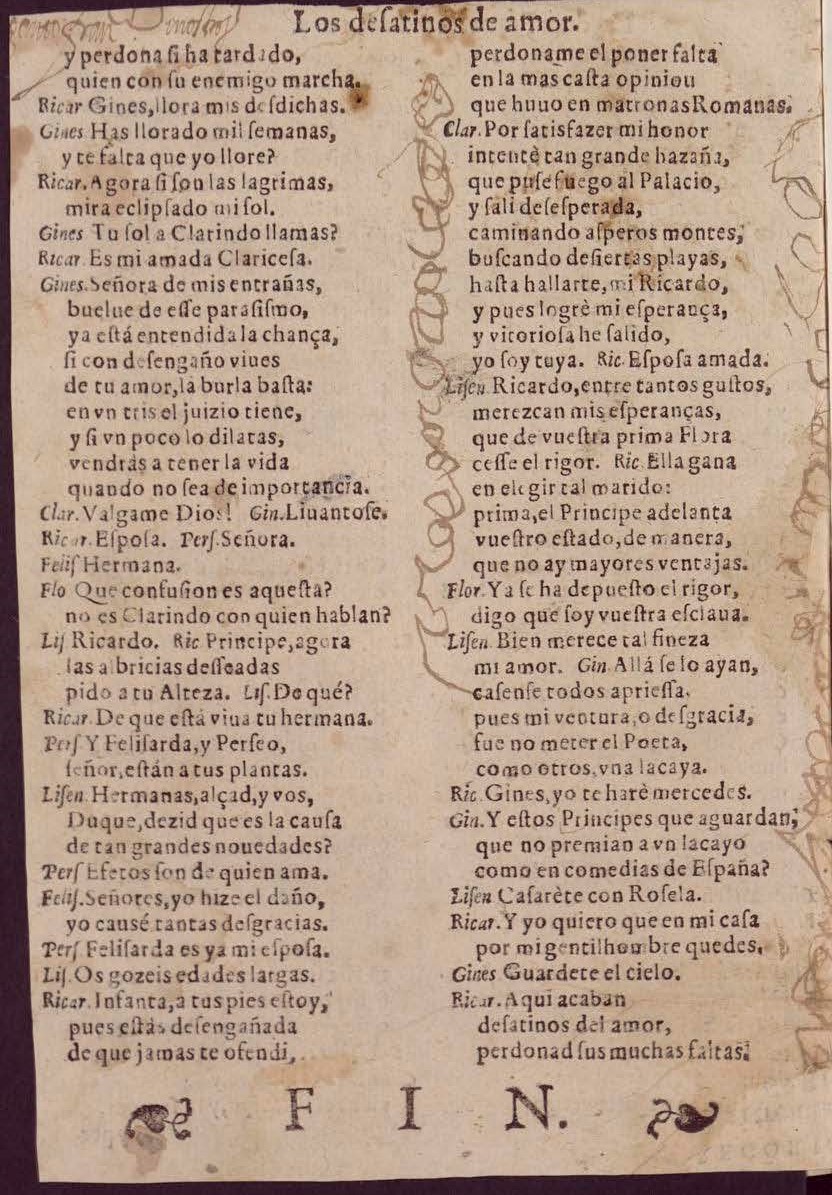 Los deſatinos de amor.
y perdona ſi ha tardado,
quien con ſu enemigo marcha.
Ricar Gines, llora mis deſdichas.
Gines Has llorado mil ſemanas,
y te falta que yo llore?
Ricar. Agora ſi ſon las lagrimas,
mira eclipſado mi ſol.
Gines Tu ſol a Clarindo llamas?
Ricar. Es mi amada Clariceſa.
Gines. Señora de mis entrañas,
buelue de eſſe paraſiſmo,
ya eſtá entendida la chança,
ſi con deſengaño viues
de tu amor, la burla baſta:
en vn tris el juizio tiene,
y ſi vn poco lo dilatas,
vendrás a tener la vida
quando no ſea de importancia.
Clar. Valgame Dios! Gin. Liuantoſe.
Ricar. Eſpoſa. Perſ. Señora.
Feliſ Hermana.
Flo Que confuſion es aqueſta?
no es Clarindo con quien hablan?
Liſ Ricardo. Ric Principe, agora
las albricias deſſeadas
pido a tu Alteza. Liſ. De qué?
Ricar. De que eſtá viua tu hermana.
Perſ Y Feliſarda, y Perſeo,
ſeñor, eſtán a tus plantas.
Liſen. Hermanas, alçad, y vos,
Duque, dezid que es la cauſa
de tan grandes nouedades?
Perſ Efetos ſon de quien ama.
Feliſ. Señores, yo hize el daño,
yo causé tantas deſgracias.
Perſ. Feliſarda es ya mi eſpoſa.
Liſ. Os gozeis edades largas.
Ricar. Infanta, a tus pies eſtoy,
pues eſtás deſengañada
de que jamas te ofendi,
perdoname el poner falta
en la mas caſta opinion
que huuo en matronas Romanas.
Clar. Por ſatisfazer mi honor
intentè tan grande hazaña,
que puſe fuego al Palacio,
y ſali deſeſperada,
caminando aſperos montes,
buſcando deſiertas playas,
haſta hallarte, mi Ricardo,
y pues logrè mi eſperança,
y vitorioſa he ſalido,
yo ſoy tuya. Ric. Eſpoſa amada.
Liſen. Ricardo, entre tantos guſtos,
merezcan mis eſperanças,
que de vueſtra prima Flora
ceſſe el rigor. Ric. Ella gana
en elegir tal marido:
prima, el Principe adelanta
vueſtro eſtado, de manera,
que no ay mayores ventajas.
Flor. Ya ſe ha depueſto el rigor,
digo que ſoy vueſtra eſclaua.
Liſen. Bien merece tal fineza
mi amor. Gin. Allá ſe lo ayan,
caſenſe todos aprieſſa,
pues mi ventura, o deſgracia,
fue no meter el Poeta,
como otros, vna lacaya.
Ric. Gines, yo te harè mercedes.
Gin. Y eſtos Principes que aguardan,
que no premian a vn lacayo
como en comedias de Eſpaña?
Liſen Caſarète con Roſela.
Ricar. Y yo quiero que en mi caſa
por mi gentilhombre quedes.
Gines Guardete el cielo.
Ricar. Aqui acaban
deſatinos del amor,
perdonad ſus muchas faltas.
F I N.